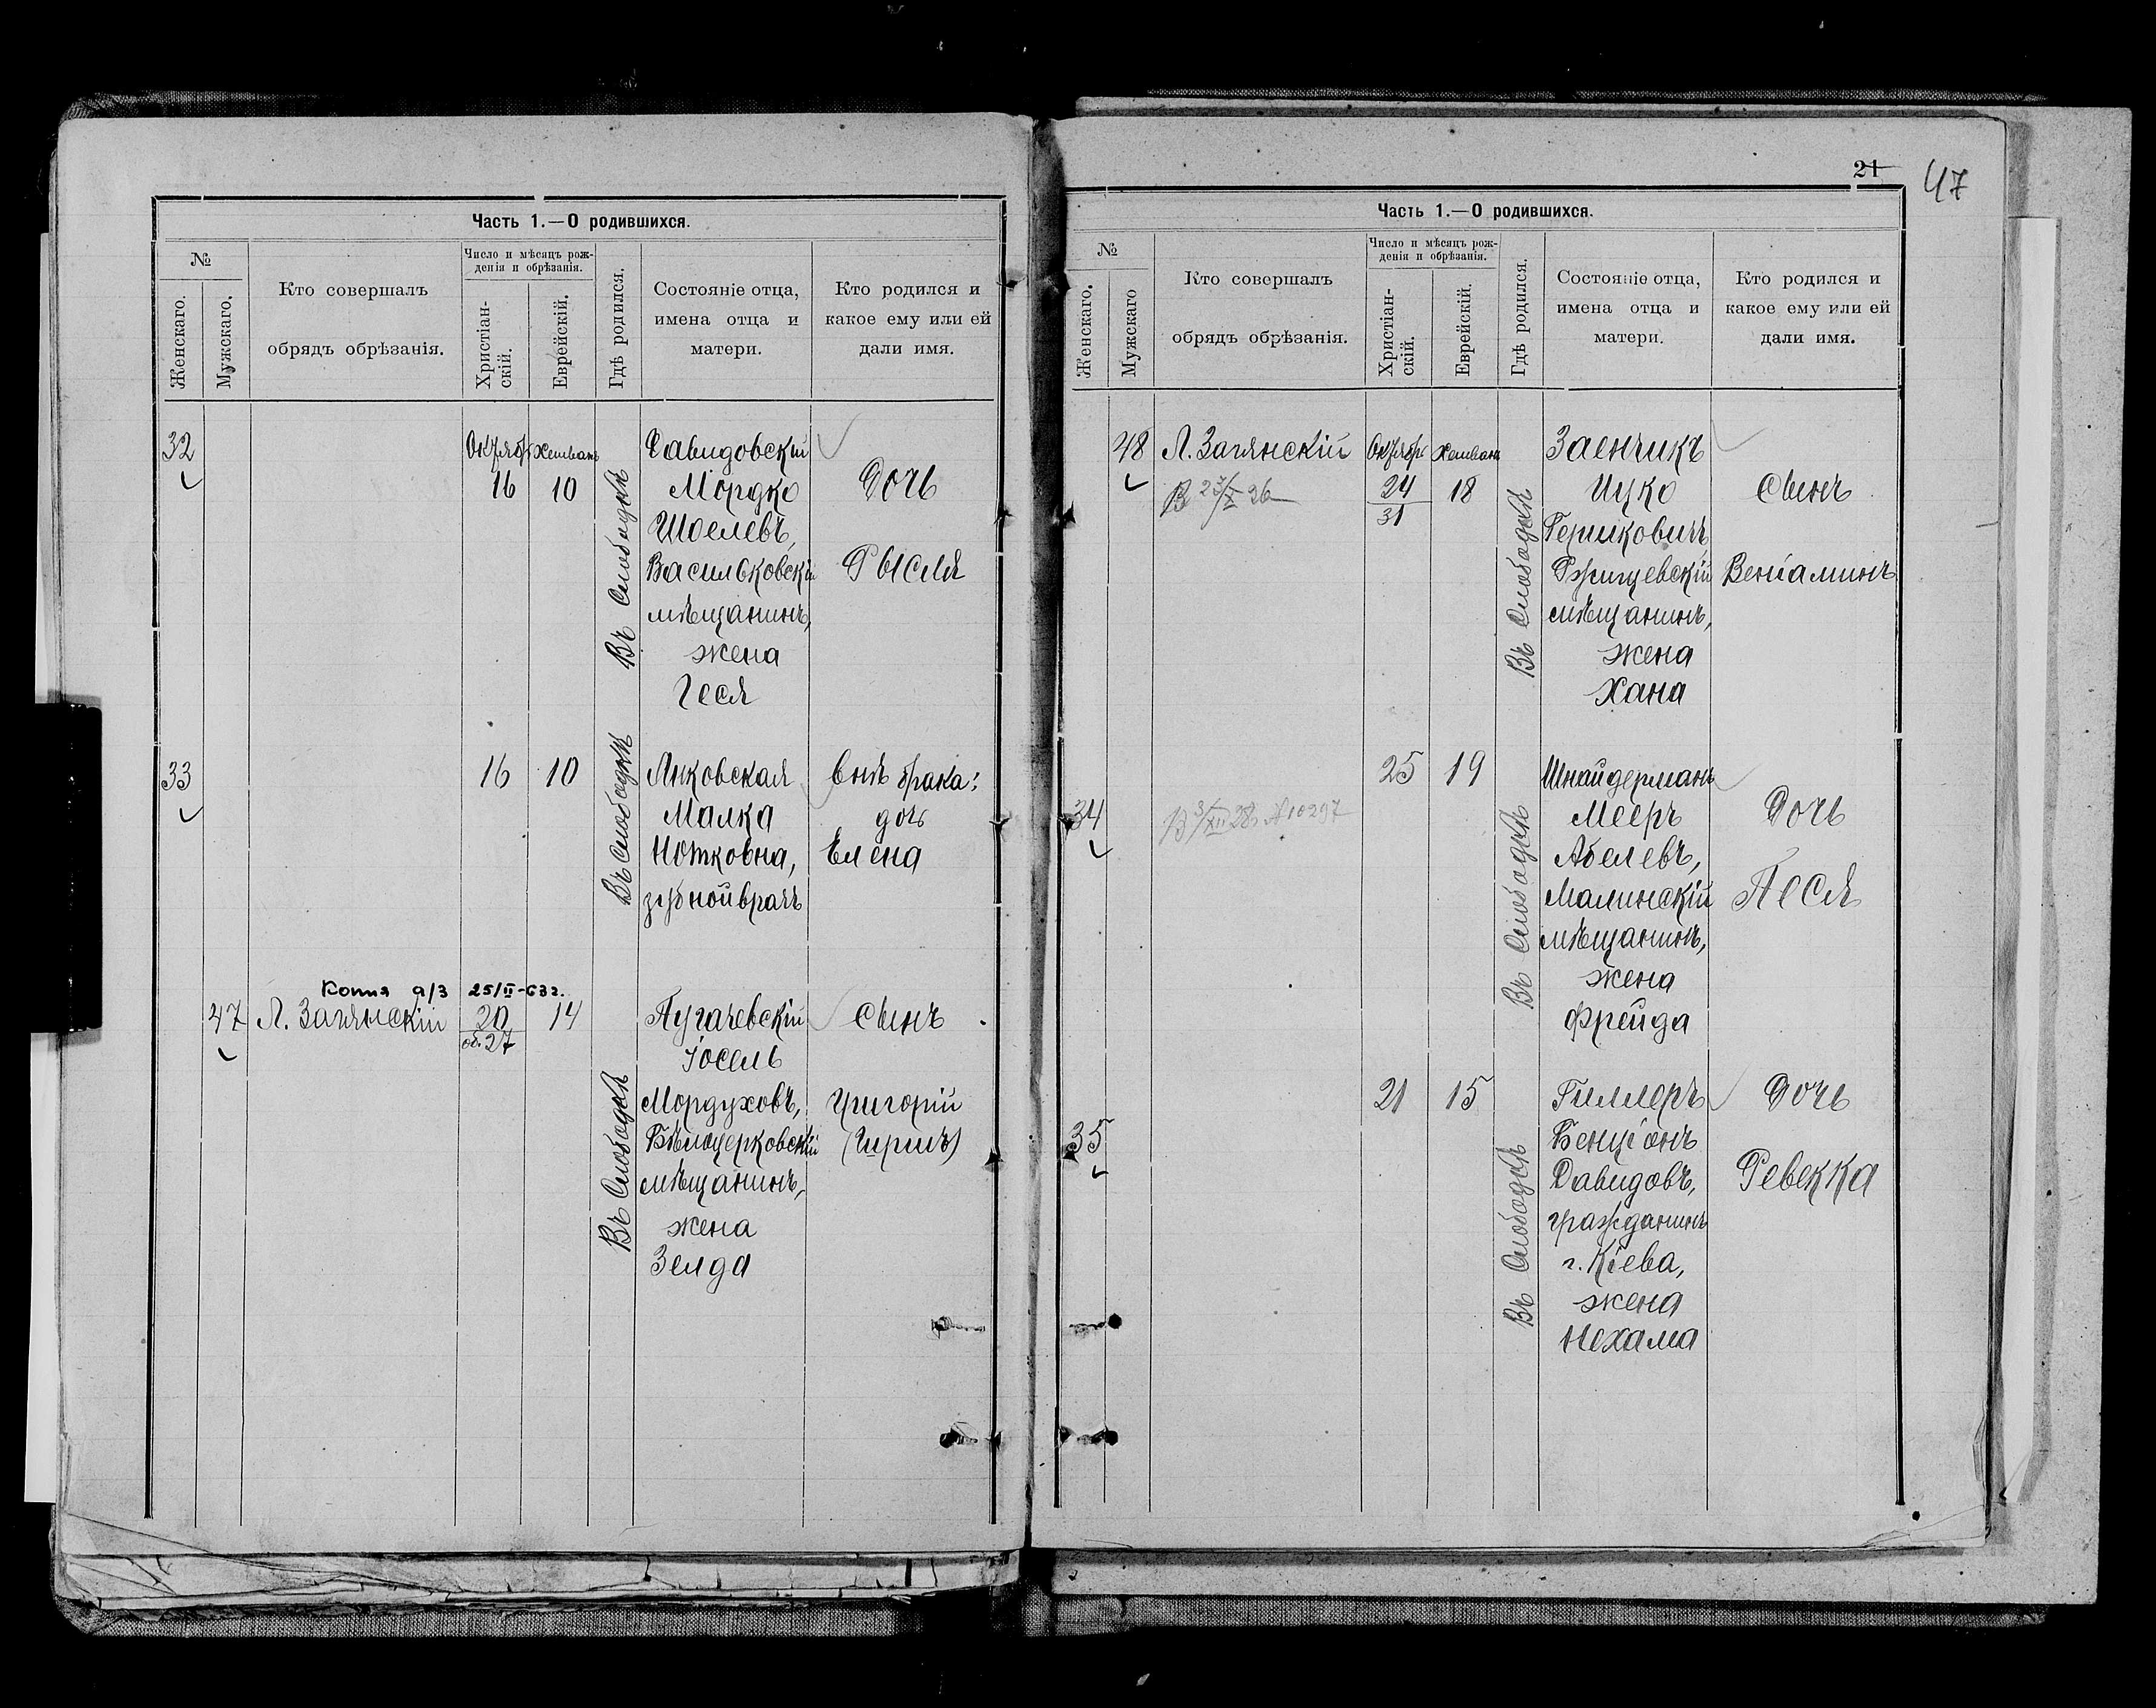 Часть 1.—О родившихся.
№
Женскаго.
Мужскаго.
Кто совершалъ
обрядъ обрѣзанія.
Число и мѣсяцъ рож-
денія и обрѣзанія.
Христіан-
скій.
Еврейскій.
Гдѣ родился.
Состояніе отца,
имена отца и
матери.
Кто родился и
какое ему или ей
дали имя.
32
Октябр Хешванъ
16 10
Въ Слободкѣ
Давидовскій
Мордко
Шоелевъ,
Васильковскій
мѣщанинъ,
жена
Геся
Дочь
Рысля
33
16 10
Въ Слободкѣ
Янковская
Малка
Нотковна,
зубной врачъ
Внѣ брака:
дочь
Елена
Копия 25/II-63г.
47
Л. Загянскій
20
об. 27
14
Въ Слободкѣ
Пугачевскій
Іосель
Мордуховъ,
Бѣлоцерковскій
мѣщанинъ,
жена
Зелда
Сынъ
Григорій
(Гиршъ)
21
47
Часть 1.—О родившихся.
№
Женскаго.
Мужскаго
Кто совершалъ
обрядъ обрѣзанія.
Число и мѣсяцъ рож-
денія и обрѣзанія.
Христіан-
скій.
Еврейскій.
Гдѣ родился.
Состояніе отца,
имена отца и
матери.
Кто родился и
какое ему или ей
дали имя.
48
Л. Загянскій
В 23/X 26
Октябр Хешванъ
24
31
18
Въ Слободкѣ
Заенчикъ
Ицко
Гершковичъ
Ржищевскій
мѣщанинъ,
жена
Хана
Сынъ
Веніаминъ
34
В 3/XII 28 №10297
25 19
Въ Слободкѣ
Шнайдерманъ
Мееръ
Абелевъ,
Малинскій
мѣщанинъ,
жена
Фрейда
Дочь
Песя
35
21 15
Въ Слободкѣ
Гиллеръ
Бенціонъ
Давидовъ,
гражданинъ
г. Кіева,
жена
Нехама
Дочь
Ревекка